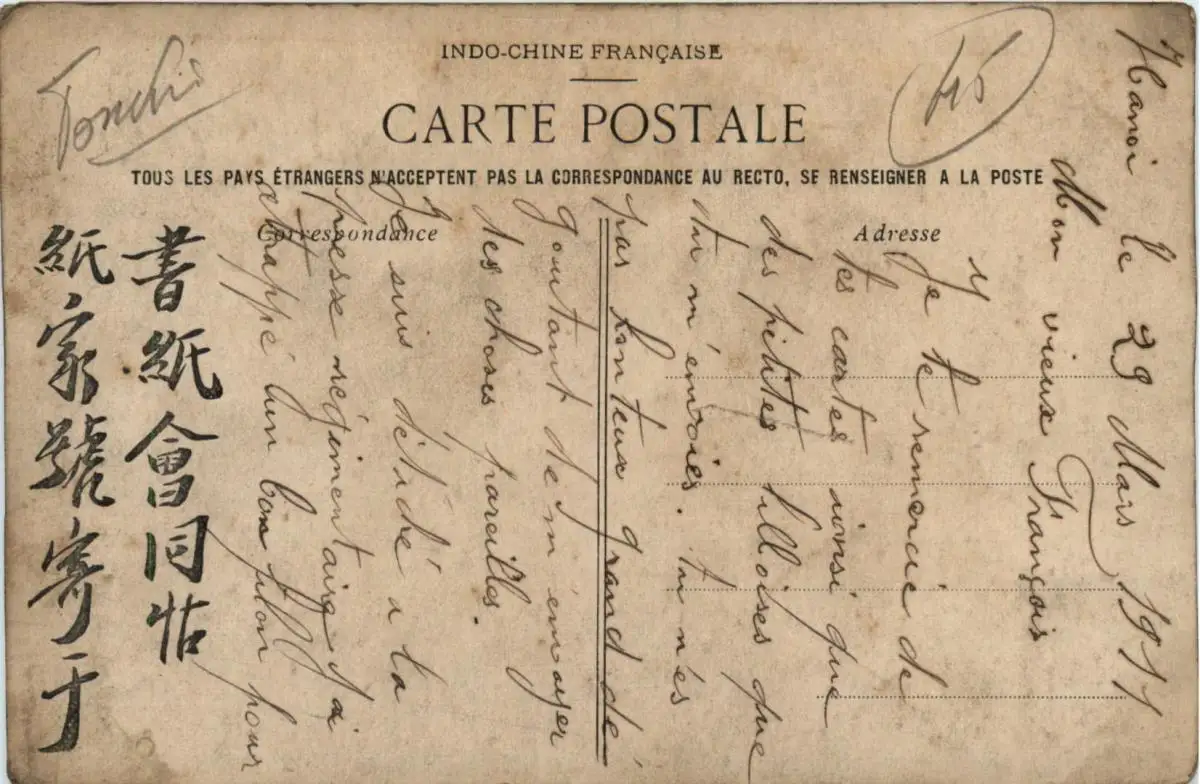 INDO-CHINE FRANÇAISE
CARTE POSTALE
TOUS LES PAYS ÉTRANGERS N'ACCEPTENT PAS LA CORRESPONDANCE AU RECTO, SE RENSEIGNER A LA POSTE
Correspondance
Adresse
Hanoi le 29 Mars 1911
Mon vieux François
Je te remercie de
tes cartes insi que
des pitites lilloises que
tu m'envoies. tu n'es
pas honteux grand dé
goutant de m'envoyer
des choses pareilles.
Je suis détidé a la
presse régimentaire J'ai
attrappé un bon filon pour
書紙會同帖
紙家號寄于